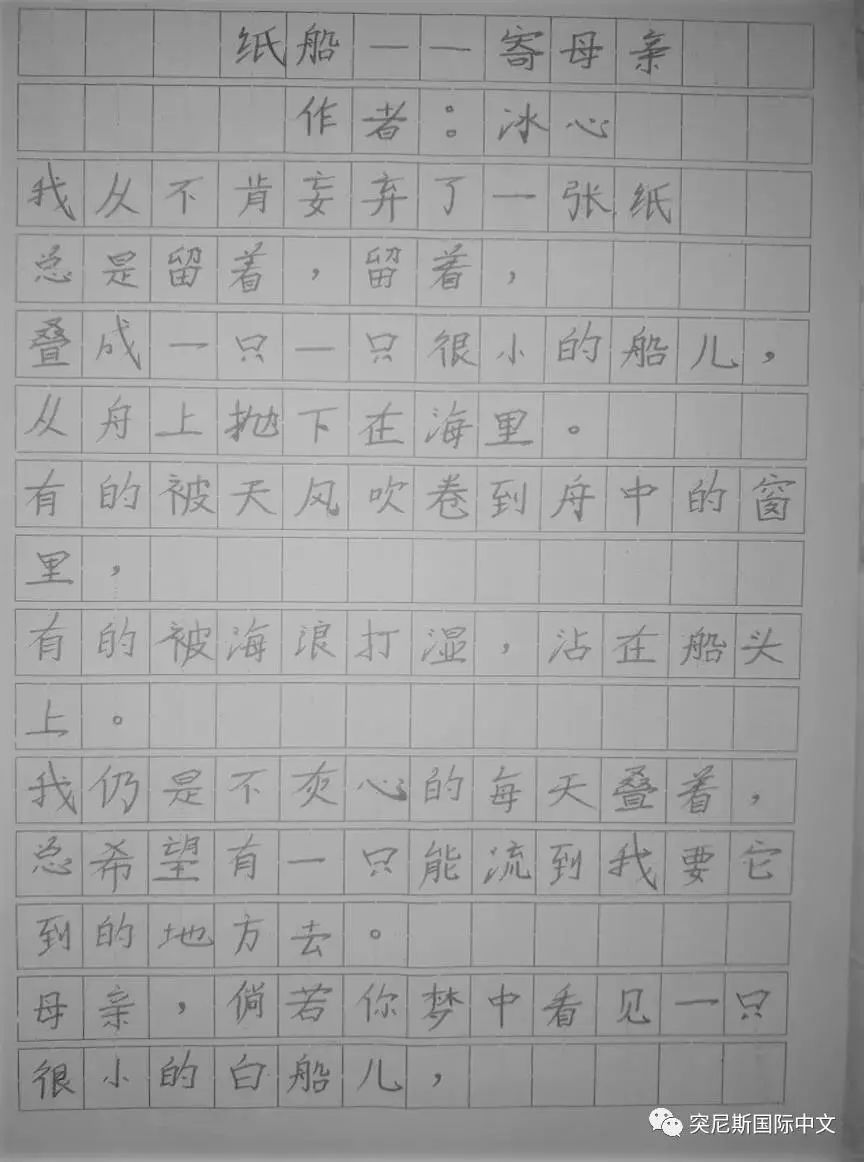 纸船——寄母亲
作者：冰心
我从不肯妄弃了一张纸
总是留着，留着，
叠成一只一只很小的船儿，
从舟上抛下在海里。
有的被天风吹卷到舟中的窗
里，
有的被海浪打湿，沾在船头
上。
我仍是不灰心的每天叠着，
总希望有一只能流到我要它
到的地方去。
母亲，倘若你梦中看见一只
很小的白船儿，
突尼斯国际中文